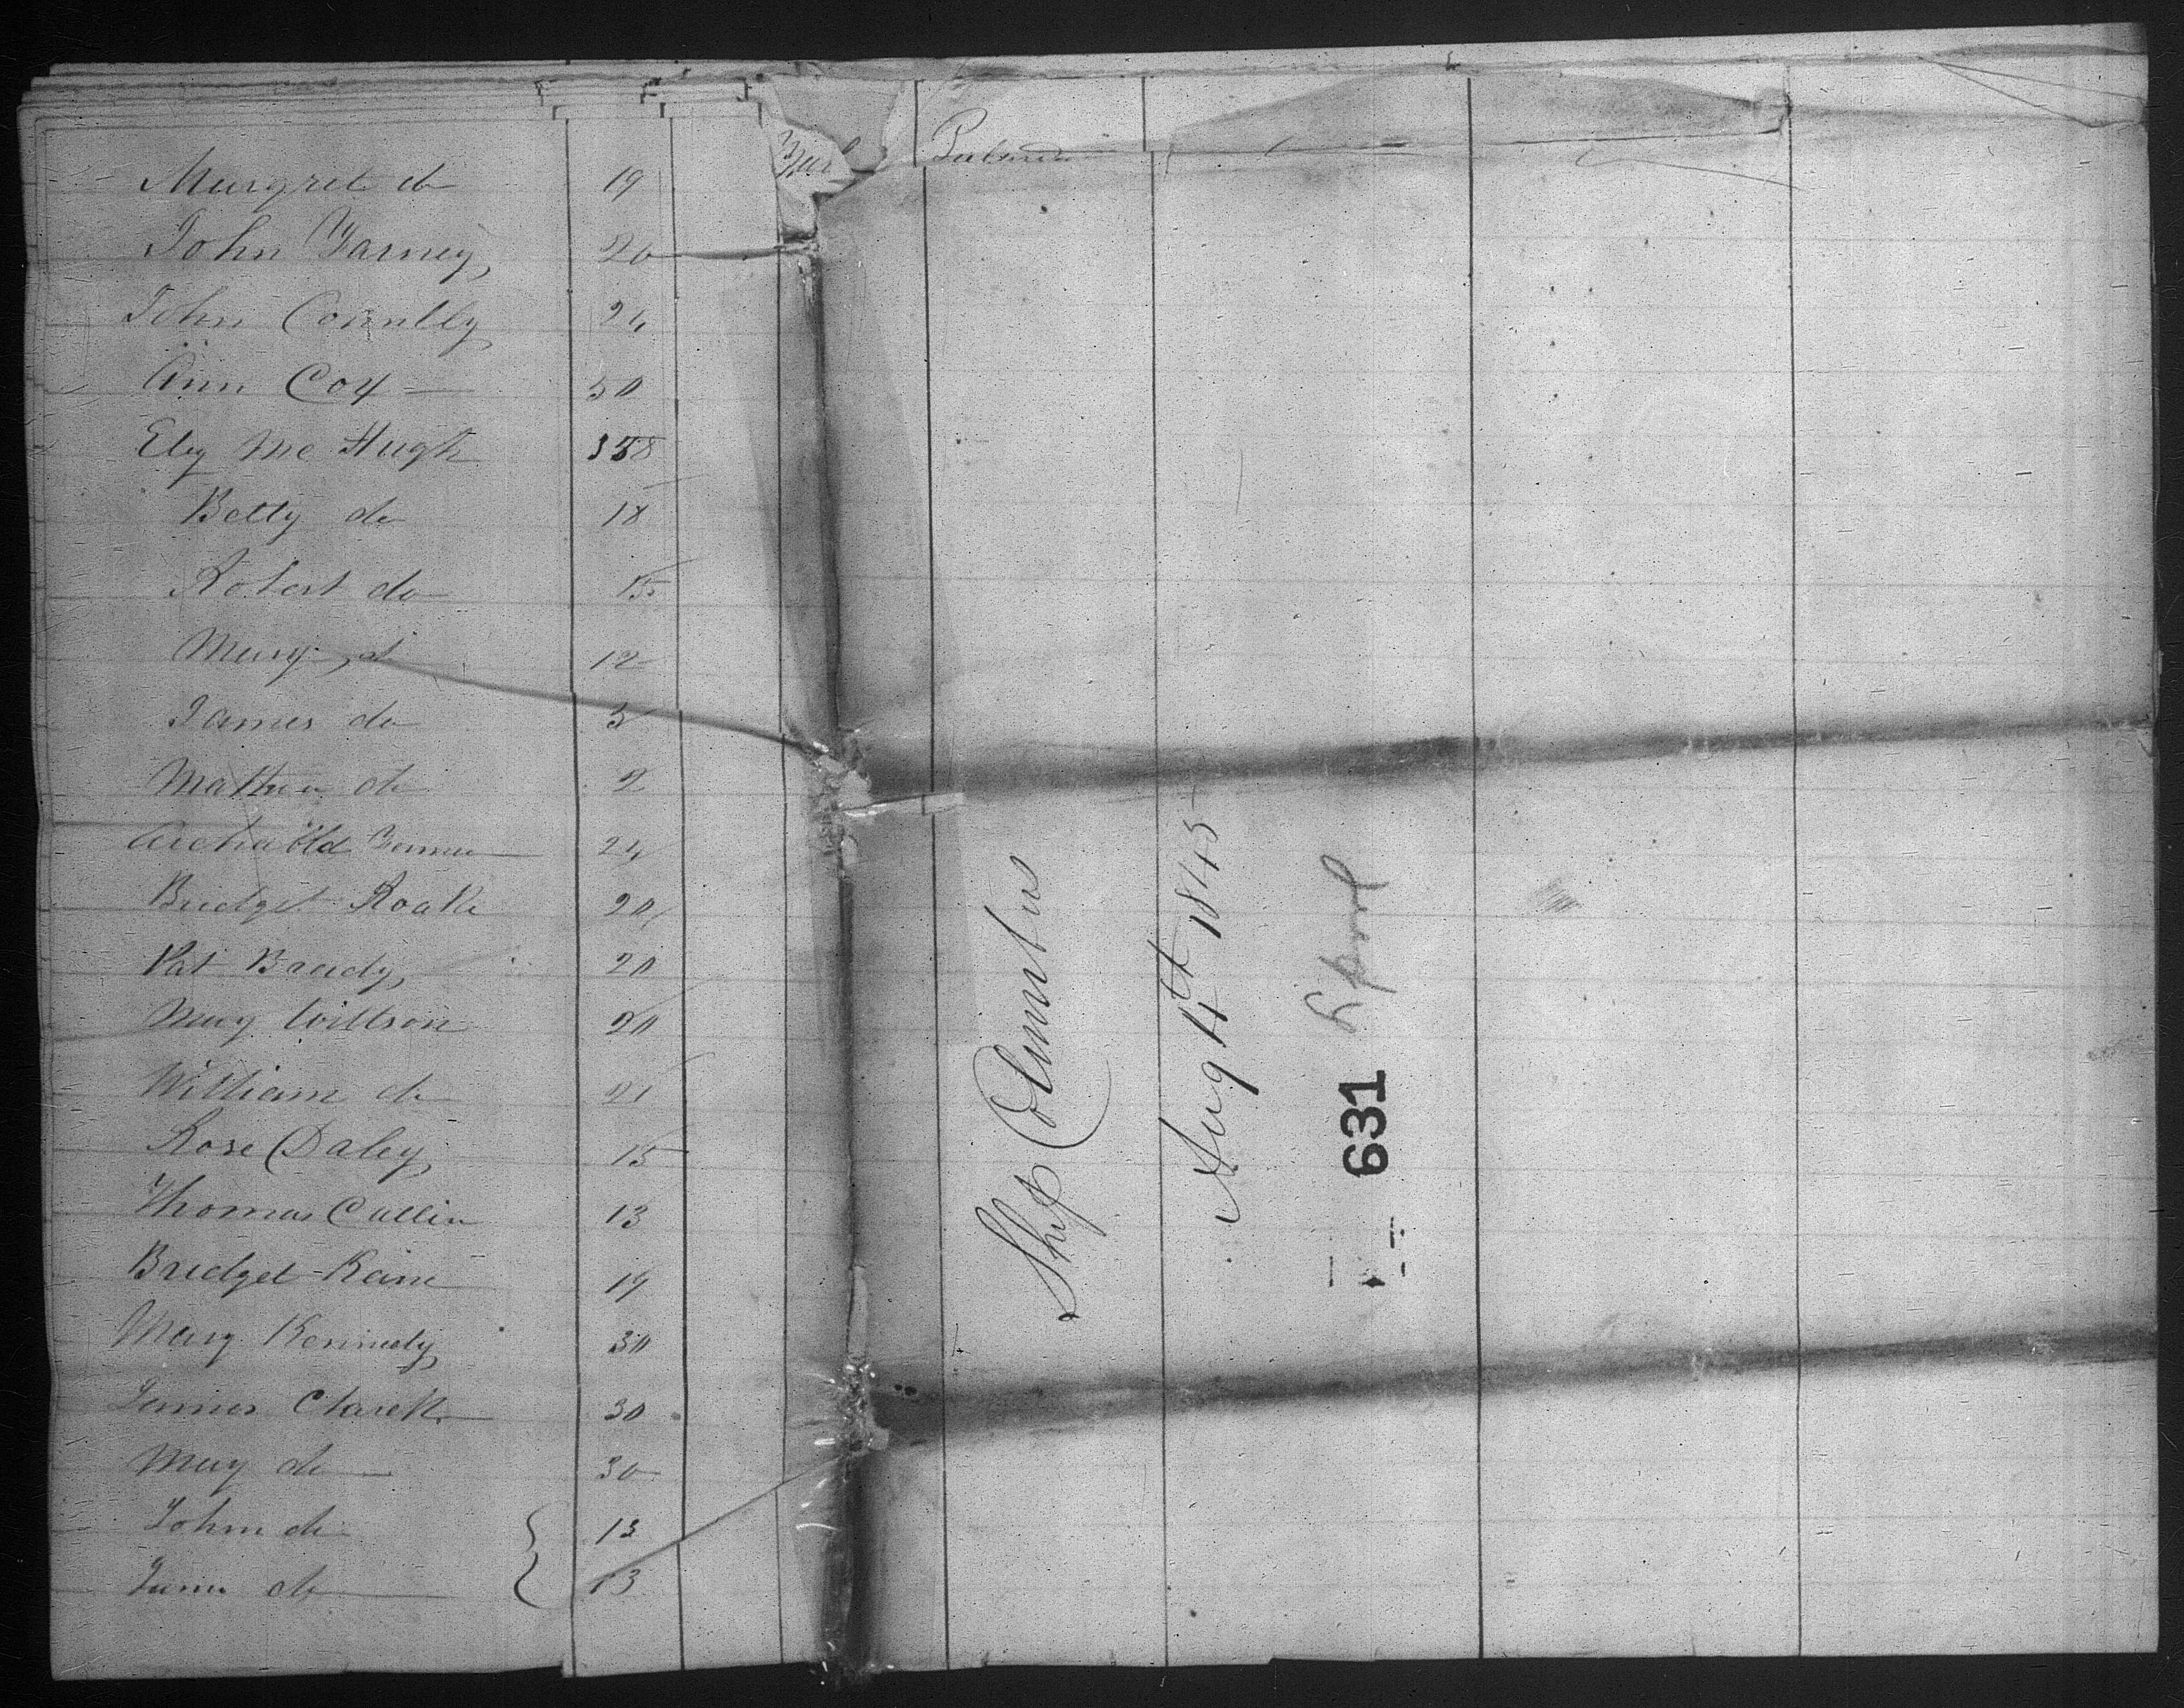 Margret do 19
John Farney 20
John Connlly 24
Ann Cox 50
Eley Mc Hugh 38
Betty do 18
Robert do 15
Mary d 12
James do 5
Mathew do 2
Archabold 24
Bridget Roake 20
Pat Brady 20
Mary Willson 20
William do 21
Rose Daley 15
Thomas Cullin 13
Bridget Kane 19
Mary Kennedy 30
James Clarek 30
Mary do 30
John do 13
James do 13
Ship Columbus
Aug 4th 1845
Lpool
631